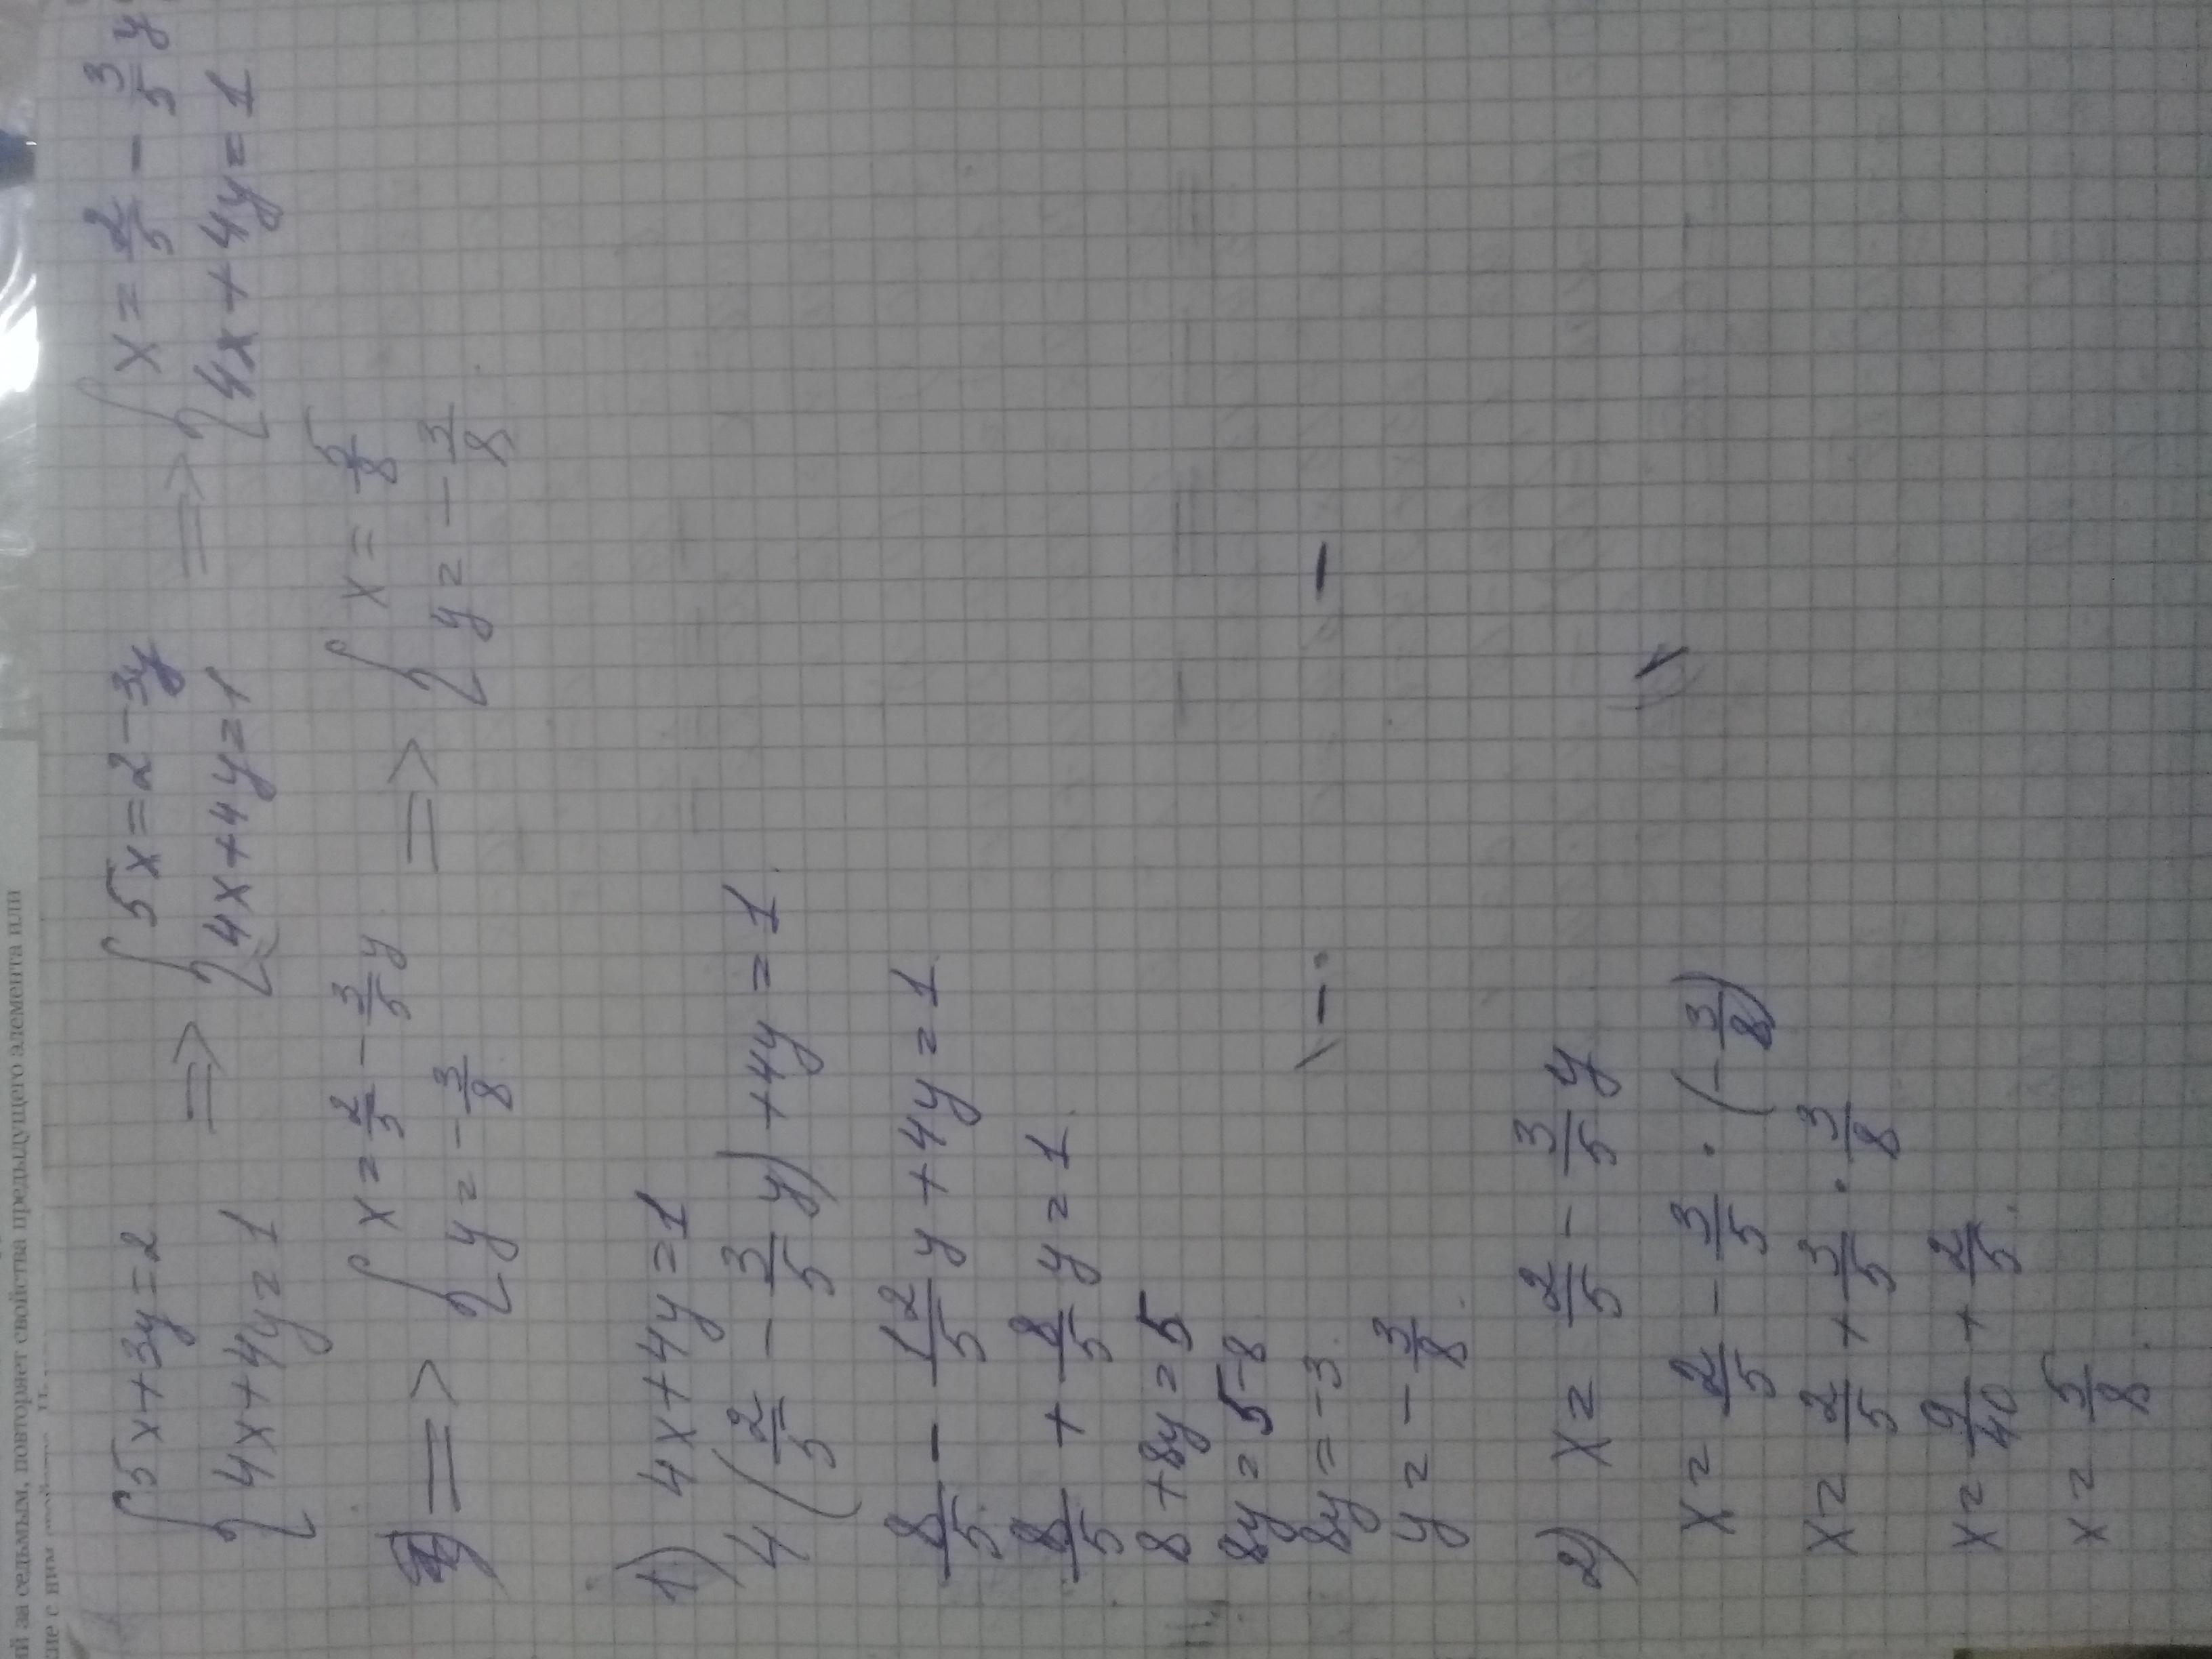 ий за седьмым, повторяет свойства предыдущего элемента или
{ 5x+3y=2 => { 5x=2-3y => { x=2/5 - 3/5 y
{ 4x+4y=1 { 4x+4y=1 { 4x+4y=1
=> { x=2/5 - 3/5 y => { x=5/8
{ y=-3/8 { y=-3/8
1) 4x+4y=1
4(2/5 - 3/5 y)+4y=1.
8/5 - 12/5 y+4y=1
8/5 + 8/5 y=1
8+8y=5
8y=5-8
8y=-3
y=-3/8.
2) x=2/5 - 3/5 y
x=2/5 - 3/5 · (-3/8)
x=2/5 + 3/5 · 3/8
x=9/40 + 2/5.
x=5/8.